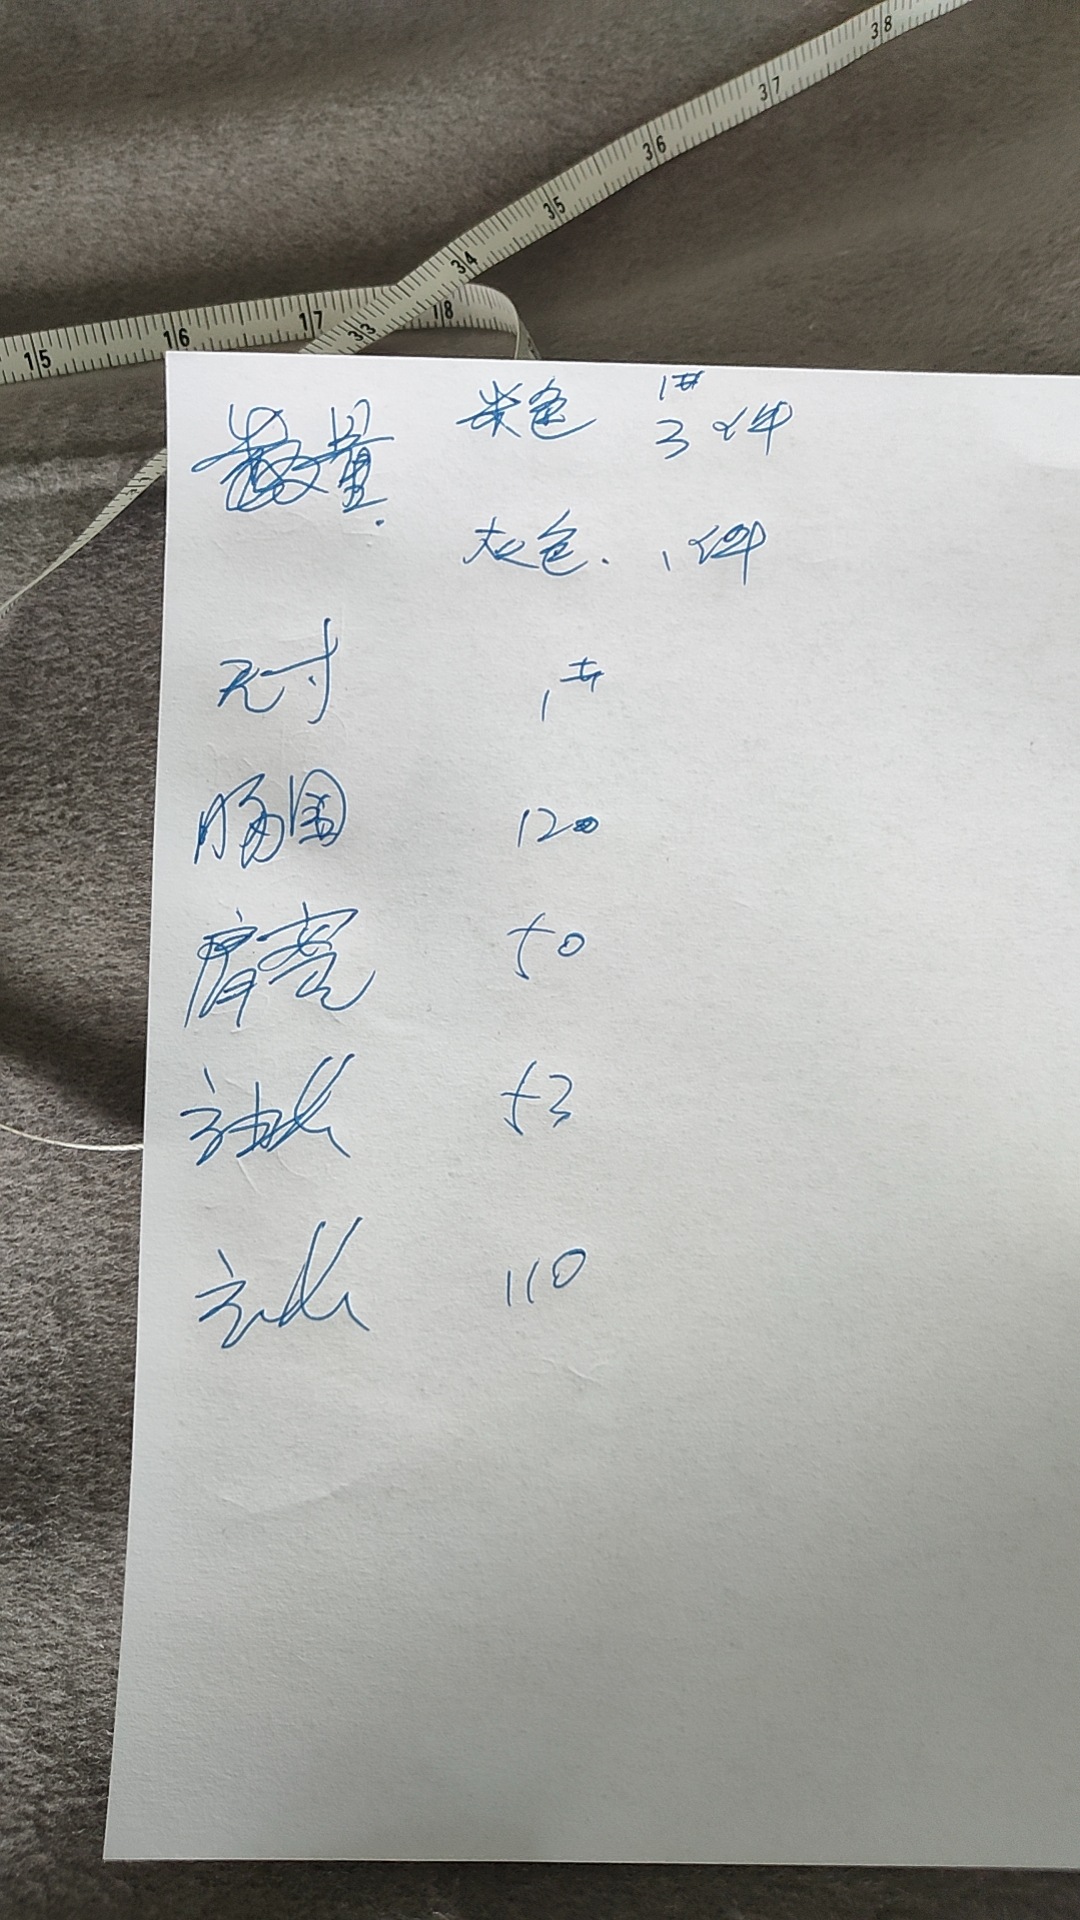 38
37
36
35
34
33
15 16 17 18
数量. 米色 3件
灰色. 1件
尺寸
胸围 120
肩宽 50
袖长 53
衣长 110